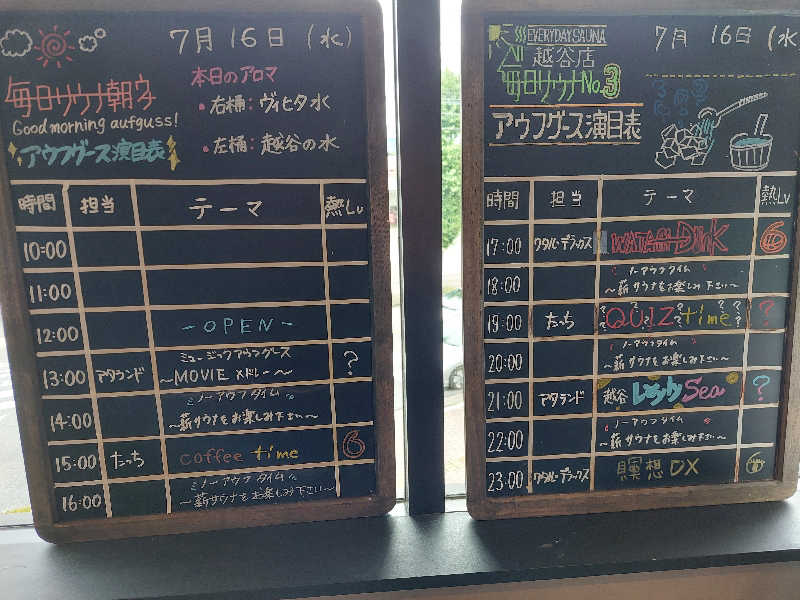 7月16日(水)
毎日サウナ朝ヶ
Good morning aufguss!
アウフグース演目表
本日のアロマ
・右桶:ヴィヒタ水
・左桶:越谷の水
時間 担当 テーマ 熱Lv
10:00
11:00
12:00 -OPEN-
13:00 アタランド ミュージックアウフグース
~MOVIEメドレー~ ?
14:00 ミノーアウフタイム
~薪サウナをお楽しみ下さい~
15:00 たっち coffee time 6
16:00 ミノーアウフタイム
~薪サウナをお楽しみ下さい~
EVERYDAY SAUNA
越谷店
毎日サウナNo.3
アウフグース演目表
7月16日(水
時間 担当 テーマ 熱Lv
17:00 ワタル・デラックス WATASHI-DinK 6
18:00 ノーアウフタイム
~薪サウナをお楽しみ下さい~
19:00 たっち QUIZ time ?
20:00 ノーアウフタイム
~薪サウナをお楽しみ下さい~
21:00 アタランド 越谷 Sea ?
22:00 ノーアウフタイム
~薪サウナをお楽しみ下さい~
23:00 ワタル・デラックス 瞑想DX